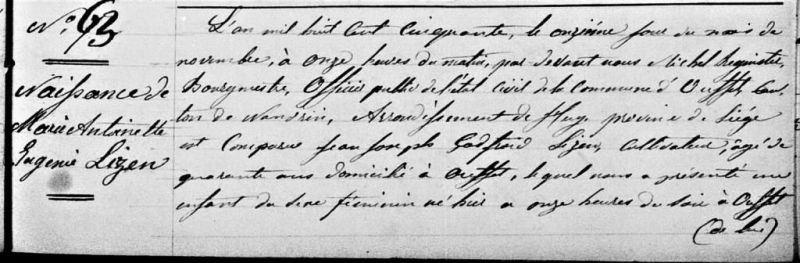 N.° 63
Naissance de
Marie Antoinette
Eugenie Lizen
L'an mil huit cent cinquante, le onzième jour du mois de
novembre, à onze heures du matin, par devant nous Michel
Bourgmestre, Officier public de l'état civil de la Commune d'Ouffet, Can-
ton de Nandrin, Arrondissement de Huy, province de Liége
est comparu Jean Joseph Godfroid Lizen, Cultivateur, âgé de
quarante ans domicilié à Ouffet, lequel nous a présenté un
enfant du sexe féminin né hier a onze heures du soir à Ouffet
(de lui)